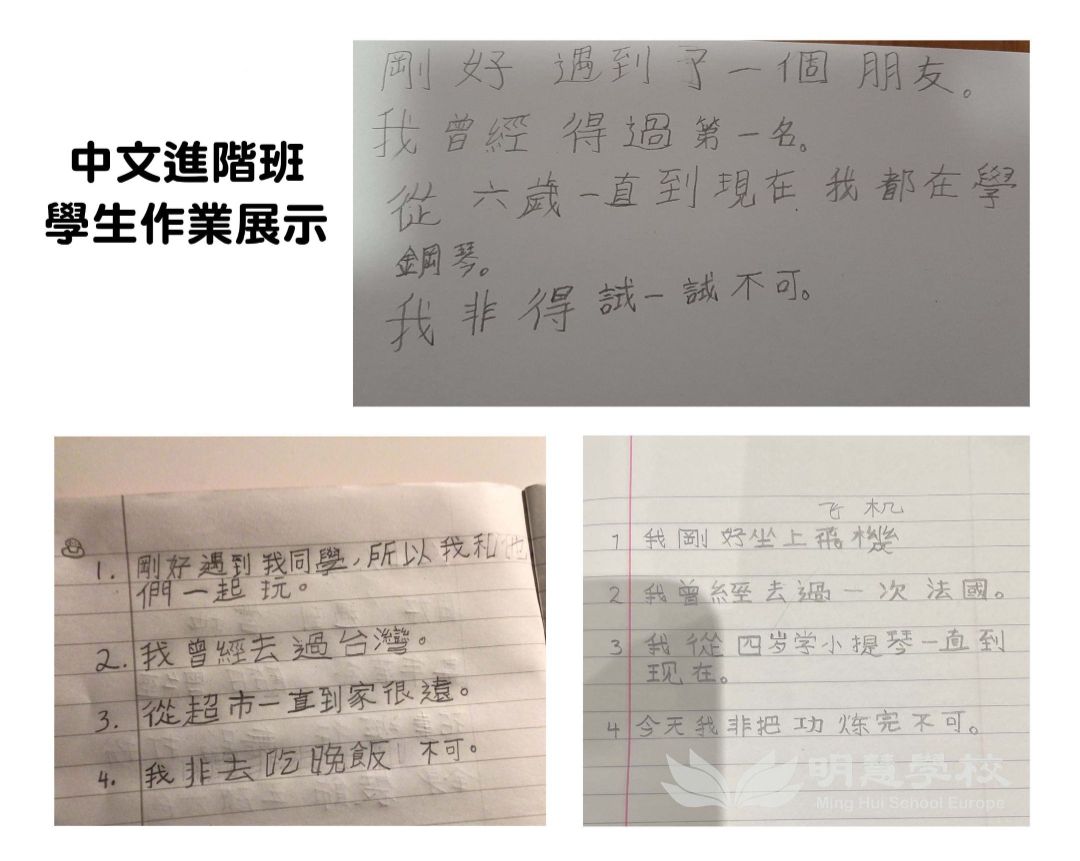 中文進階班
學生作業展示
剛好遇到了一個朋友。
我曾經得過第一名。
從六歲一直到現在我都在學
鋼琴。
我非得試一試不可。
1. 剛好遇到我同學,所以我和他
們一起玩。
2. 我曾經去過台灣。
3. 從超市一直到家很遠。
4. 我非去吃晚飯不可。
飞机
1 我剛好坐上飛機
2 我曾經去過一次法國。
3 我從四岁学小提琴一直到
现在。
4 今天我非把功炼完不可。
明慧學校
Ming Hui School Europe